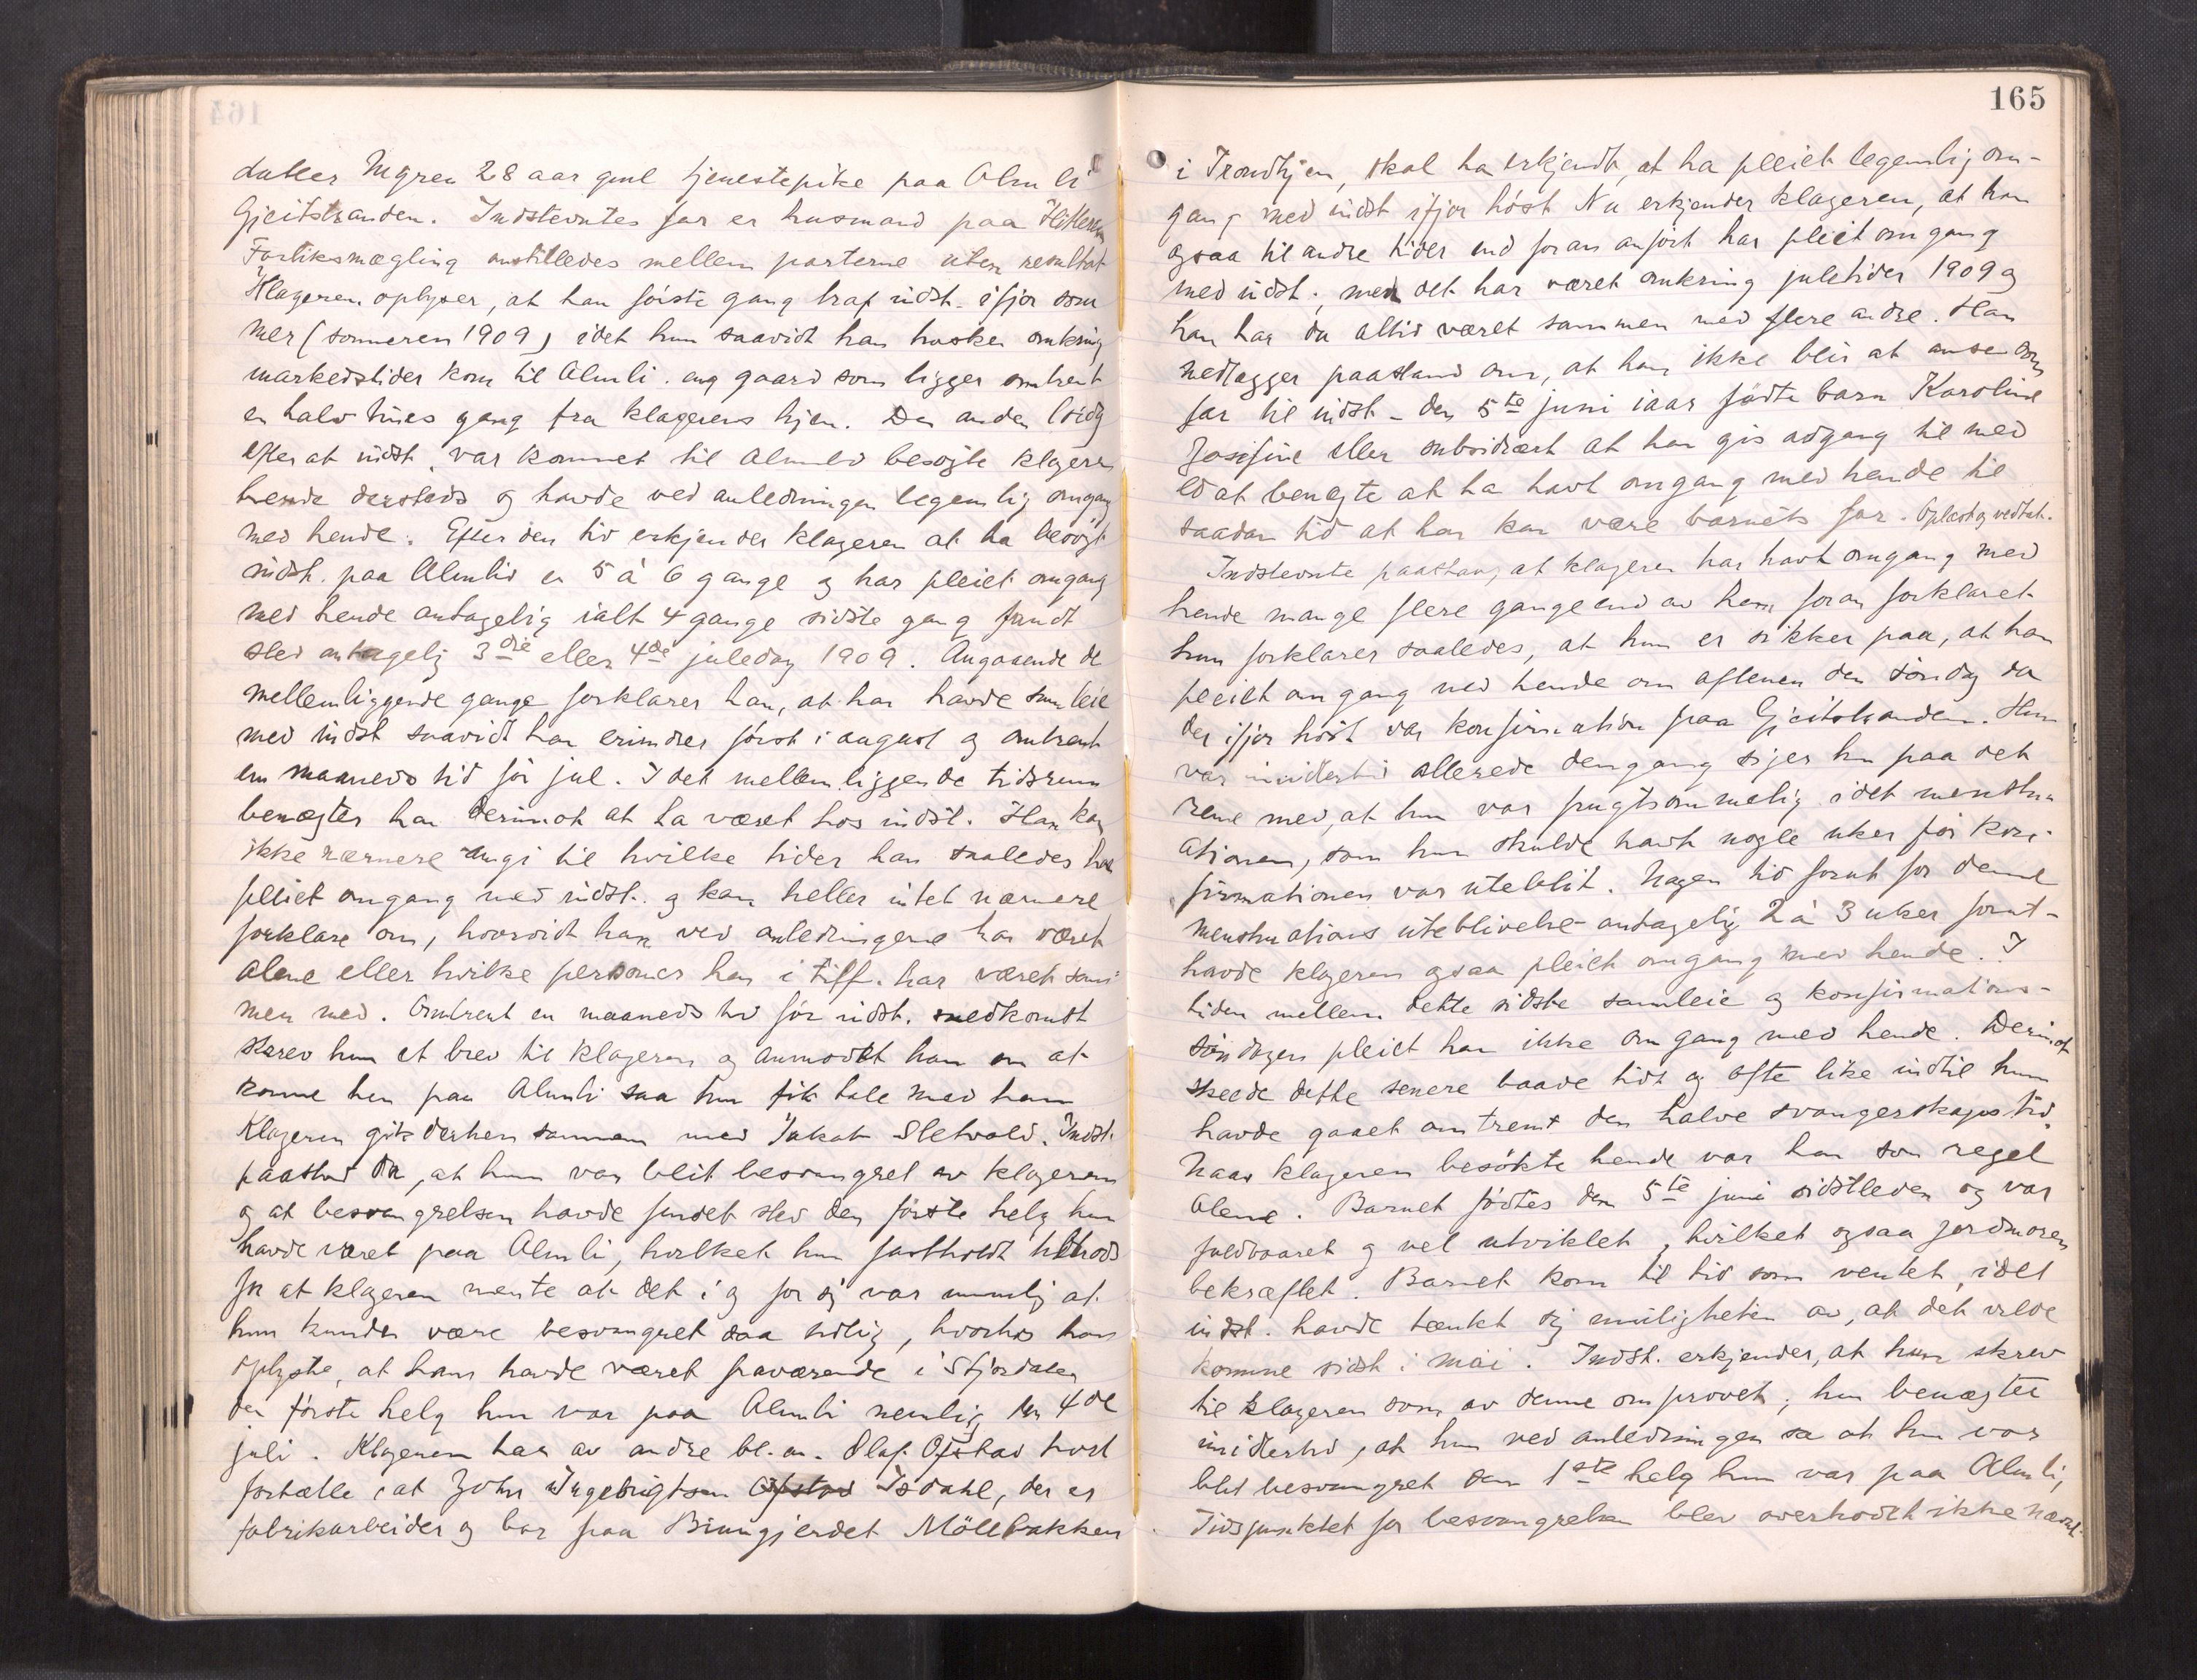 datter Myren 28 aar gml tjenestepike paa Almli
Gjeitstranden. Indstevntes far er husmand paa Hitteren
Forliksmægling anstilledes mellem parterne uten resultat
Klageren oplyser, at han første gang traf indst. ifjor som
mer (sommeren 1909) idet hun saavidt han husker omkring
markedstider kom til Almli. ang gaard som ligger omtrent
en halv times gang fra klagerens hjem. Den anden lördag
efter at indst. var kommet til Almli besøgte klageren
hende dersteds og havde ved anledningen legemlig omgang
med hende. Efter den tid erkjender klageren at ha besøgt
indst. paa Almlid en 5 à 6 gange og har pleiet omgang
med hende antagelig ialt 4 gange sidste gang fandt
sted antagelig 3die eller 4de juledag 1909. Angaaende de
mellemliggende gange forklarer han, at han havde samleie
med indst saavidt han erindrer først i august og omtrent
en maaneds tid før jul. I det mellemliggende tidsrum
benægter han derimot at ha været hos indst. Han kan
ikke nærmere angi til hvilke tider han saaledes har
pleiet omgang med indst. og kan heller intet nærmere
forklare om, hvorvidt han ved anledningene har været
alene eller hvilke personer han i tilf. har været sam
men med. Omtrent en maaneds tid før indst. nedkomst
skrev hun et brev til klageren og anmodet han om at
komme hen paa Almli saa hun fik tale med ham
Klageren gik derhen sammen med Jakob Sletvold. Indst.
paastod da, at hun var blit besvangret av klageren
og at besvangrelsen havde fundet sted den første helg hun
havde været paa Almli, hvilket hun fastholdt tiltrods
for at klageren mente at det i og for sig var umulig at
hun kunde være besvangret saa tidlig, hvorhos han
oplyste, at han havde været fraværende i Stjørdalen
den første helg hun var paa Almli nemlig den 4de
juli. Klageren har av andre bl. an. Olaf Opstad hørt
fortælle, at Johr Ingebrigtsen Opstad Isdahl, der er
fabrikarbeider og bor paa Biungjerdet Möllebakken
165
i Trondhjem, skal ha erkjendt, at ha pleiet legemlig om-
gang med indst ifjor høst Nu erkjender klageren, at han
ogsaa til andre tider end foran anført har pleiet omgang
med indst.; men det har været omkring juletider 1909 og
han har da altid været sammen med flere andre. Han
nedlægger paastand om, at han ikke blir at anse som
far til indst. den 5te juni iaar fødte barn Karoline
Josefine eller subsidiært at han gis adgang til med
ed at benægte at ha havt omgang med hende til
saadan tid at han kan være barnets far. Oplæst og vedtat.
Indstevnte paastaar, at klageren har havt omgang med
hende mange flere gange end av ham foran forklaret
hun forklarer saaledes, at hun er sikker paa, at han
pleiet omgang med hende om aftenen den søndag da
der ifjor høst var konfirmation paa Gjeitstranden. Hun
var imidlertid allerede dengang siger hun paa det
rene med, at hun var frugtsommelig idet menstru
ationen, som hun skulde havt nogle uker før kon
firmationen var uteblit. Nogen tid forut for denne
menstruations uteblivelse antagelig 2 à 3 uker forut-
havde klageren ogsaa pleiet omgang med hende. I
tiden mellem dette sidste samleie og konfirmations-
søndagen pleiet han ikke omgang med hende. Derimot
skeede dette senere baade tidt og ofte like indtil hun
havde gaaet omtrent den halve svangerskapstid.
Naar klageren besøkte hende var han som regel
alene. Barnet fødtes den 5te juni sidstleden og var
fuldbaaret og vel utviklet, hvilket ogsaa jordmoren
bekræftet. Barnet kom til tid som ventet, idet
indst. havde tænkt sig muligheten av, at det vilde
komme sidst i mai. Indst. erkjender, at hun skrev
til klageren som av denne omprovet; hun benægter
imidlertid, at hun ved anledningen sa at hun var
blit besvangret den 1ste helg hun var paa Almli,
Tidspunktet for besvangrelsen blev overhodet ikke nævnt